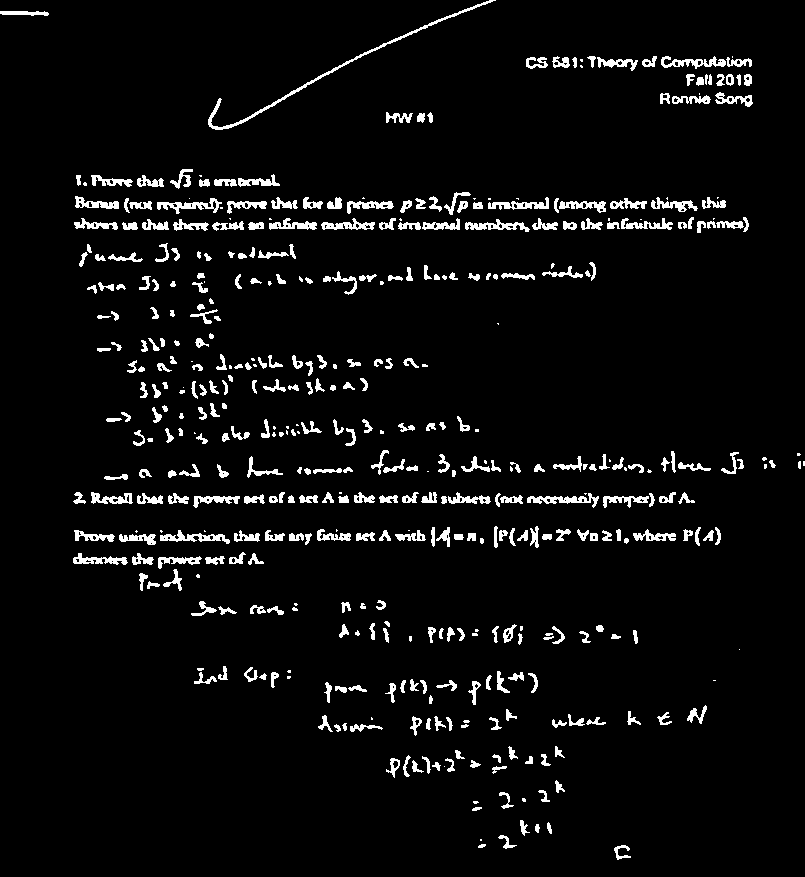 CS 581: Theory of Computation
Fall 2019
Ronnie Song
HW #1
1. Prove that √3 is irrational.
Bonus (not required): prove that for all primes p ≥ 2, √p is irrational (among other things, this
shows us that there exist an infinite number of irrational numbers, due to the infinitude of primes)
√3 is rational
then √3 = a/b (a, b is integer, and have no common factors)
→ 3 = a²/b²
→ 3b² = a²
So a² is divisible by 3, so as a.
3b² = (3k)² (where 3k = a)
→ b² = 3k²
So b² is also divisible by 3, so as b.
→ a and b have common factor 3, which is a contradiction. Hence √3 is
2. Recall that the power set of a set A is the set of all subsets (not necessarily proper) of A.
Prove using induction, that for any finite set A with |A| = n, |P(A)| = 2ⁿ ∀n ≥ 1, where P(A)
denotes the power set of A.
Proof:
Base case: n = 0
A = {}, P(A) = {∅} ⇒ 2⁰ = 1
Ind Step: prove p(k) → p(k+1)
Assume P(k) = 2ᵏ where k ∈ N
P(k) + 2ᵏ = 2ᵏ + 2ᵏ
= 2 · 2ᵏ
= 2ᵏ⁺¹
□